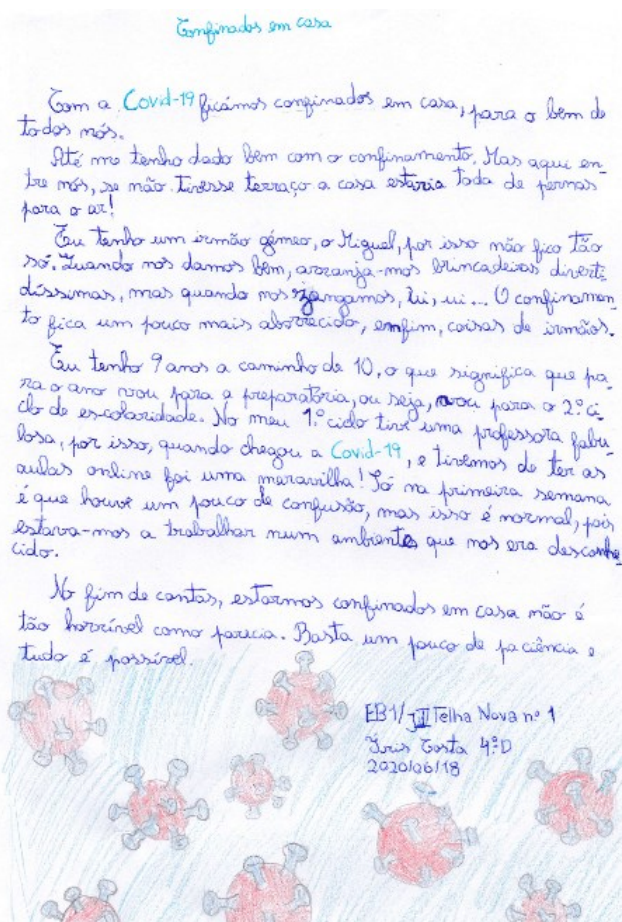 Confinados em casa
Com a Covid-19 ficámos confinados em casa, para o bem de
todos nós.
Até me tenho dado bem com o confinamento. Mas aqui en_
tre nós, se não tivesse terraço a casa estaria toda de pernas
para o ar!
Eu tenho um irmão gémeo, o Miguel, por isso não fico tão
só. Quando nos damos bem, arranja-mos brincadeiras diverti_
díssimas, mas quando nos zangamos, ui, ui... O confinamen_
to fica um pouco mais aborrecido, emfim, coisas de irmãos.
Eu tenho 9 anos a caminho de 10, o que significa que pa_
ra o ano vou para a preparatória, ou seja, vou para o 2.º ci_
clo de escolaridade. No meu 1.º ciclo tive uma professora fabu_
losa, por isso, quando chegou a Covid-19, e tivemos de ter as
aulas online foi uma maravilha! Só na primeira semana
é que houve um pouco de confusão, mas isso é normal, pois
estava-mos a trabalhar num ambiente que nos era desconhe_
cido.
No fim de contas, estarmos confinados em casa não é
tão horrível como parecia. Basta um pouco de paciência e
tudo é possível.
EB1/JI Telha Nova nº 1
Iris Costa 4ºD
2020/06/18